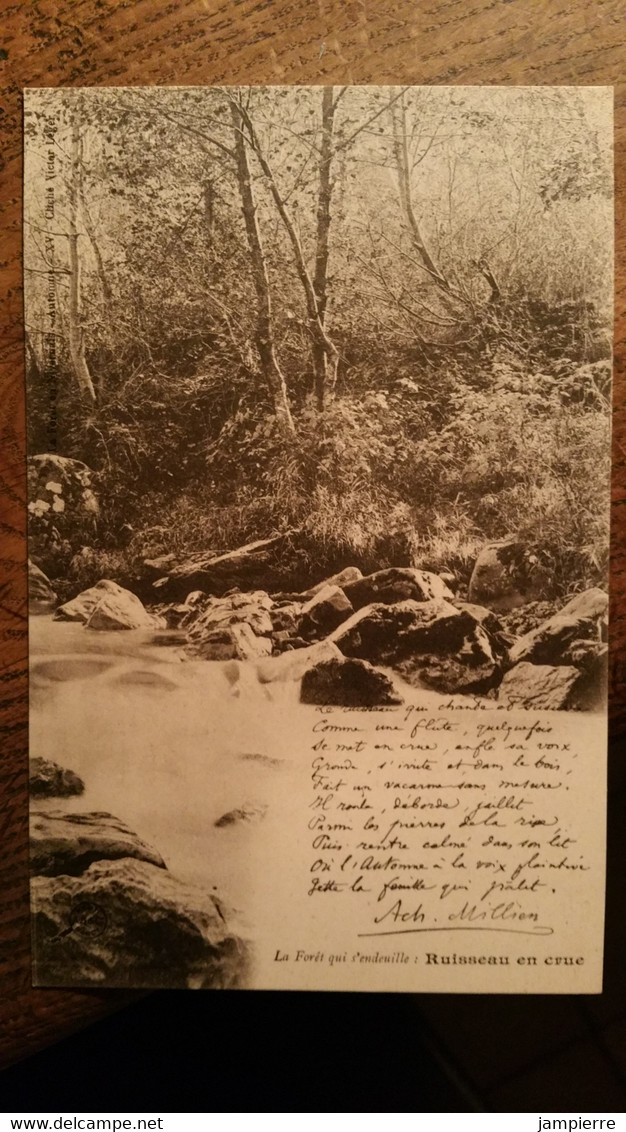 Automne - XV Cliché Victor Léger
Le ruisseau qui chante et
Comme une flûte, quelquefois
Se met en crue, enfle sa voix,
Gronde, s'irrite et, dans le bois,
Fait un vacarme sans mesure.
Il roule, déborde, jaillit
Parmi les pierres de la rive,
Puis rentre calmé dans son lit
Où l'Automne à la voix plaintive
Jette la feuille qui pâlit.
Ach. Millien
La Forêt qui s'endeuille : Ruisseau en crue
jampierre